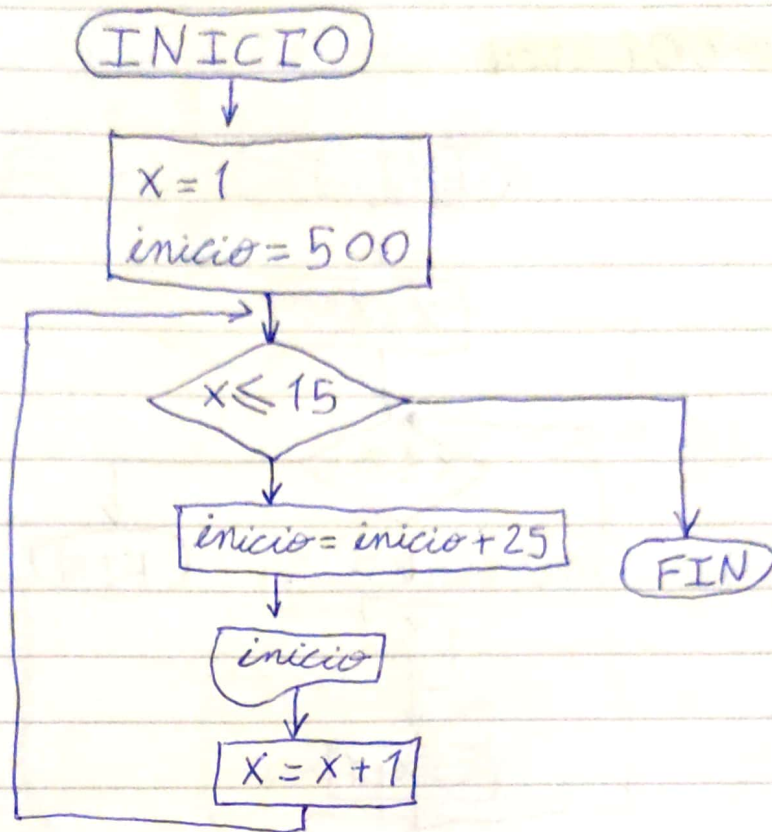 INICIO
x = 1
inicio = 500
x ≤ 15
inicio = inicio + 25
FIN
inicio
x = x + 1